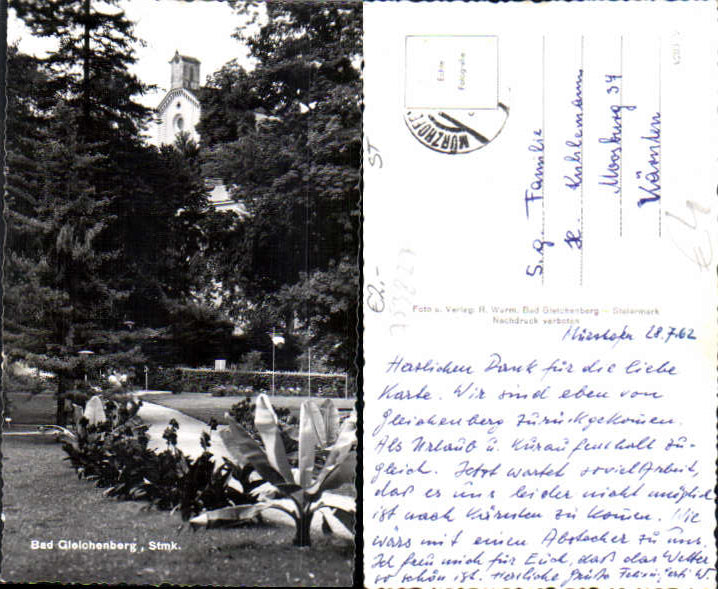 Bad Gleichenberg, Stmk.
Echte
Fotografie
MÜRZHOFE
S.g. Familie
H. Kuhlemann
Moosburg 34
Kärnten
ST
€ 2,-
€ 4
Foto u. Verlag: R. Wurm, Bad Gleichenberg - Steiermark
Nachdruck verboten
Mürzhofen 28.7.62
Herzlichen Dank für die liebe
Karte. Wir sind eben von
Gleichenberg zurückgekommen.
Als Urlaub u. Kuraufenthalt zu-
gleich. Jetzt wartet soviel Arbeit,
daß es uns leider nicht möglich
ist nach Kärnten zu kommen. Wie
wärs mit einen Abstecher zu uns.
Ich freu mich für Euch, daß das Wetter
so schön ist. Herzliche Grüße